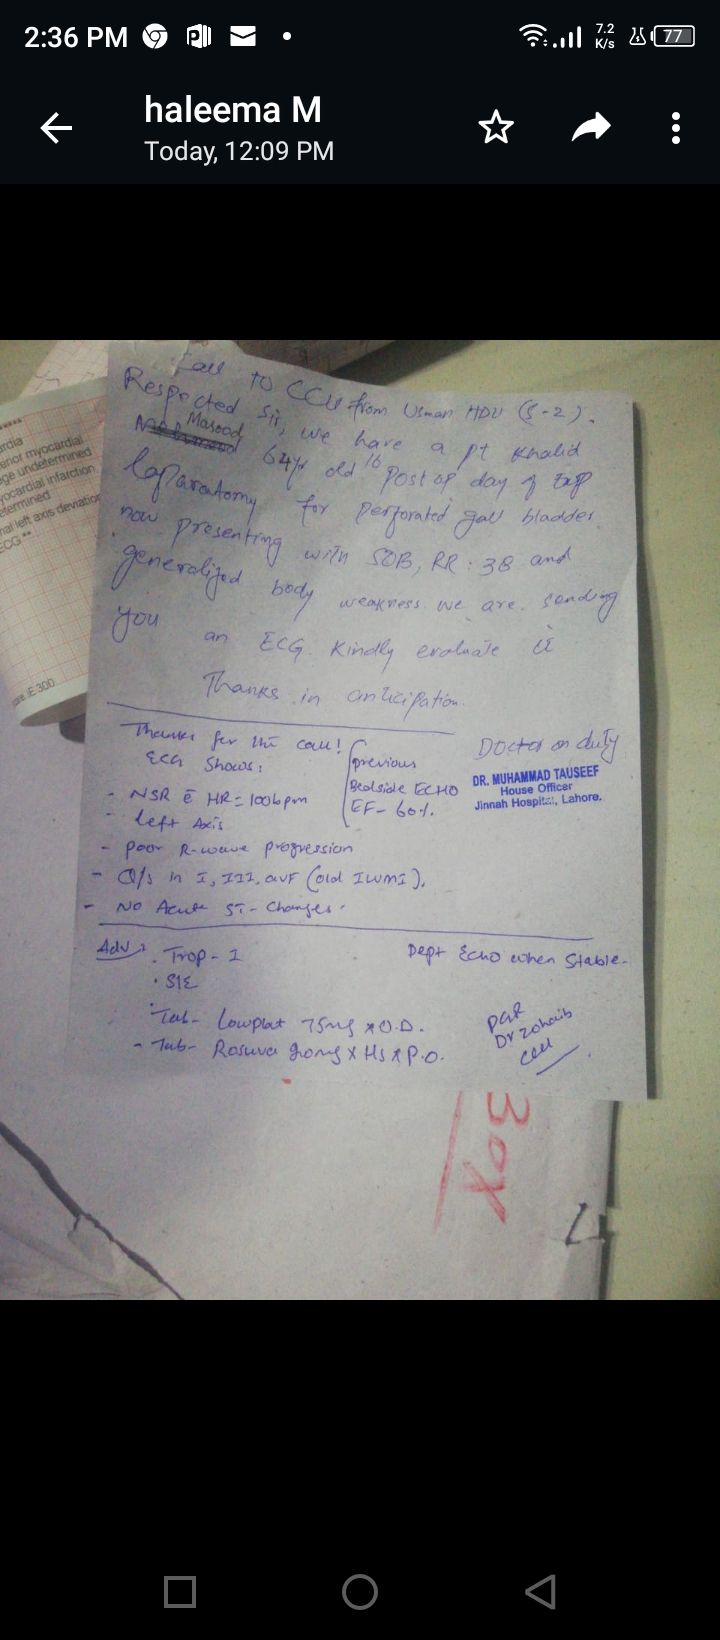 2:36 PM
7.2 K/s
77
haleema M
Today, 12:09 PM
Call to CCU from Usman HDU (S-2).
Respected Sir, we have a pt Khalid
Masood 64yr old 16 post op day of Exp
laparatomy for perforated gall bladder
now presenting with SOB, RR: 38 and
generalized body weakness. we are sending
you an ECG. Kindly evaluate it
Thanks in anticipation.
Doctor on duty
DR. MUHAMMAD TAUSEEF
House Officer
Jinnah Hospital, Lahore.
Thanks for the call!
ECG shows:
previous
Bedside ECHO
EF- 60%.
- NSR c̄ HR= 100bpm
- left Axis
- poor R-wave progression
- Q/s in I, III, avF (old IWMI).
- No Acute ST-Changes.
Adv
. Trop-I
Dept Echo when Stable.
. S/E
Tab- Lowplat 75mg x O.D.
- Tab- Rosuva 20mg x Hs x P.O.
PGR
Dr Zohaib
CCU
30x
rdia
erior myocardial
ge undetermined
yocardial infarction
etermined
mal left axis deviation
ECG **
iE 300